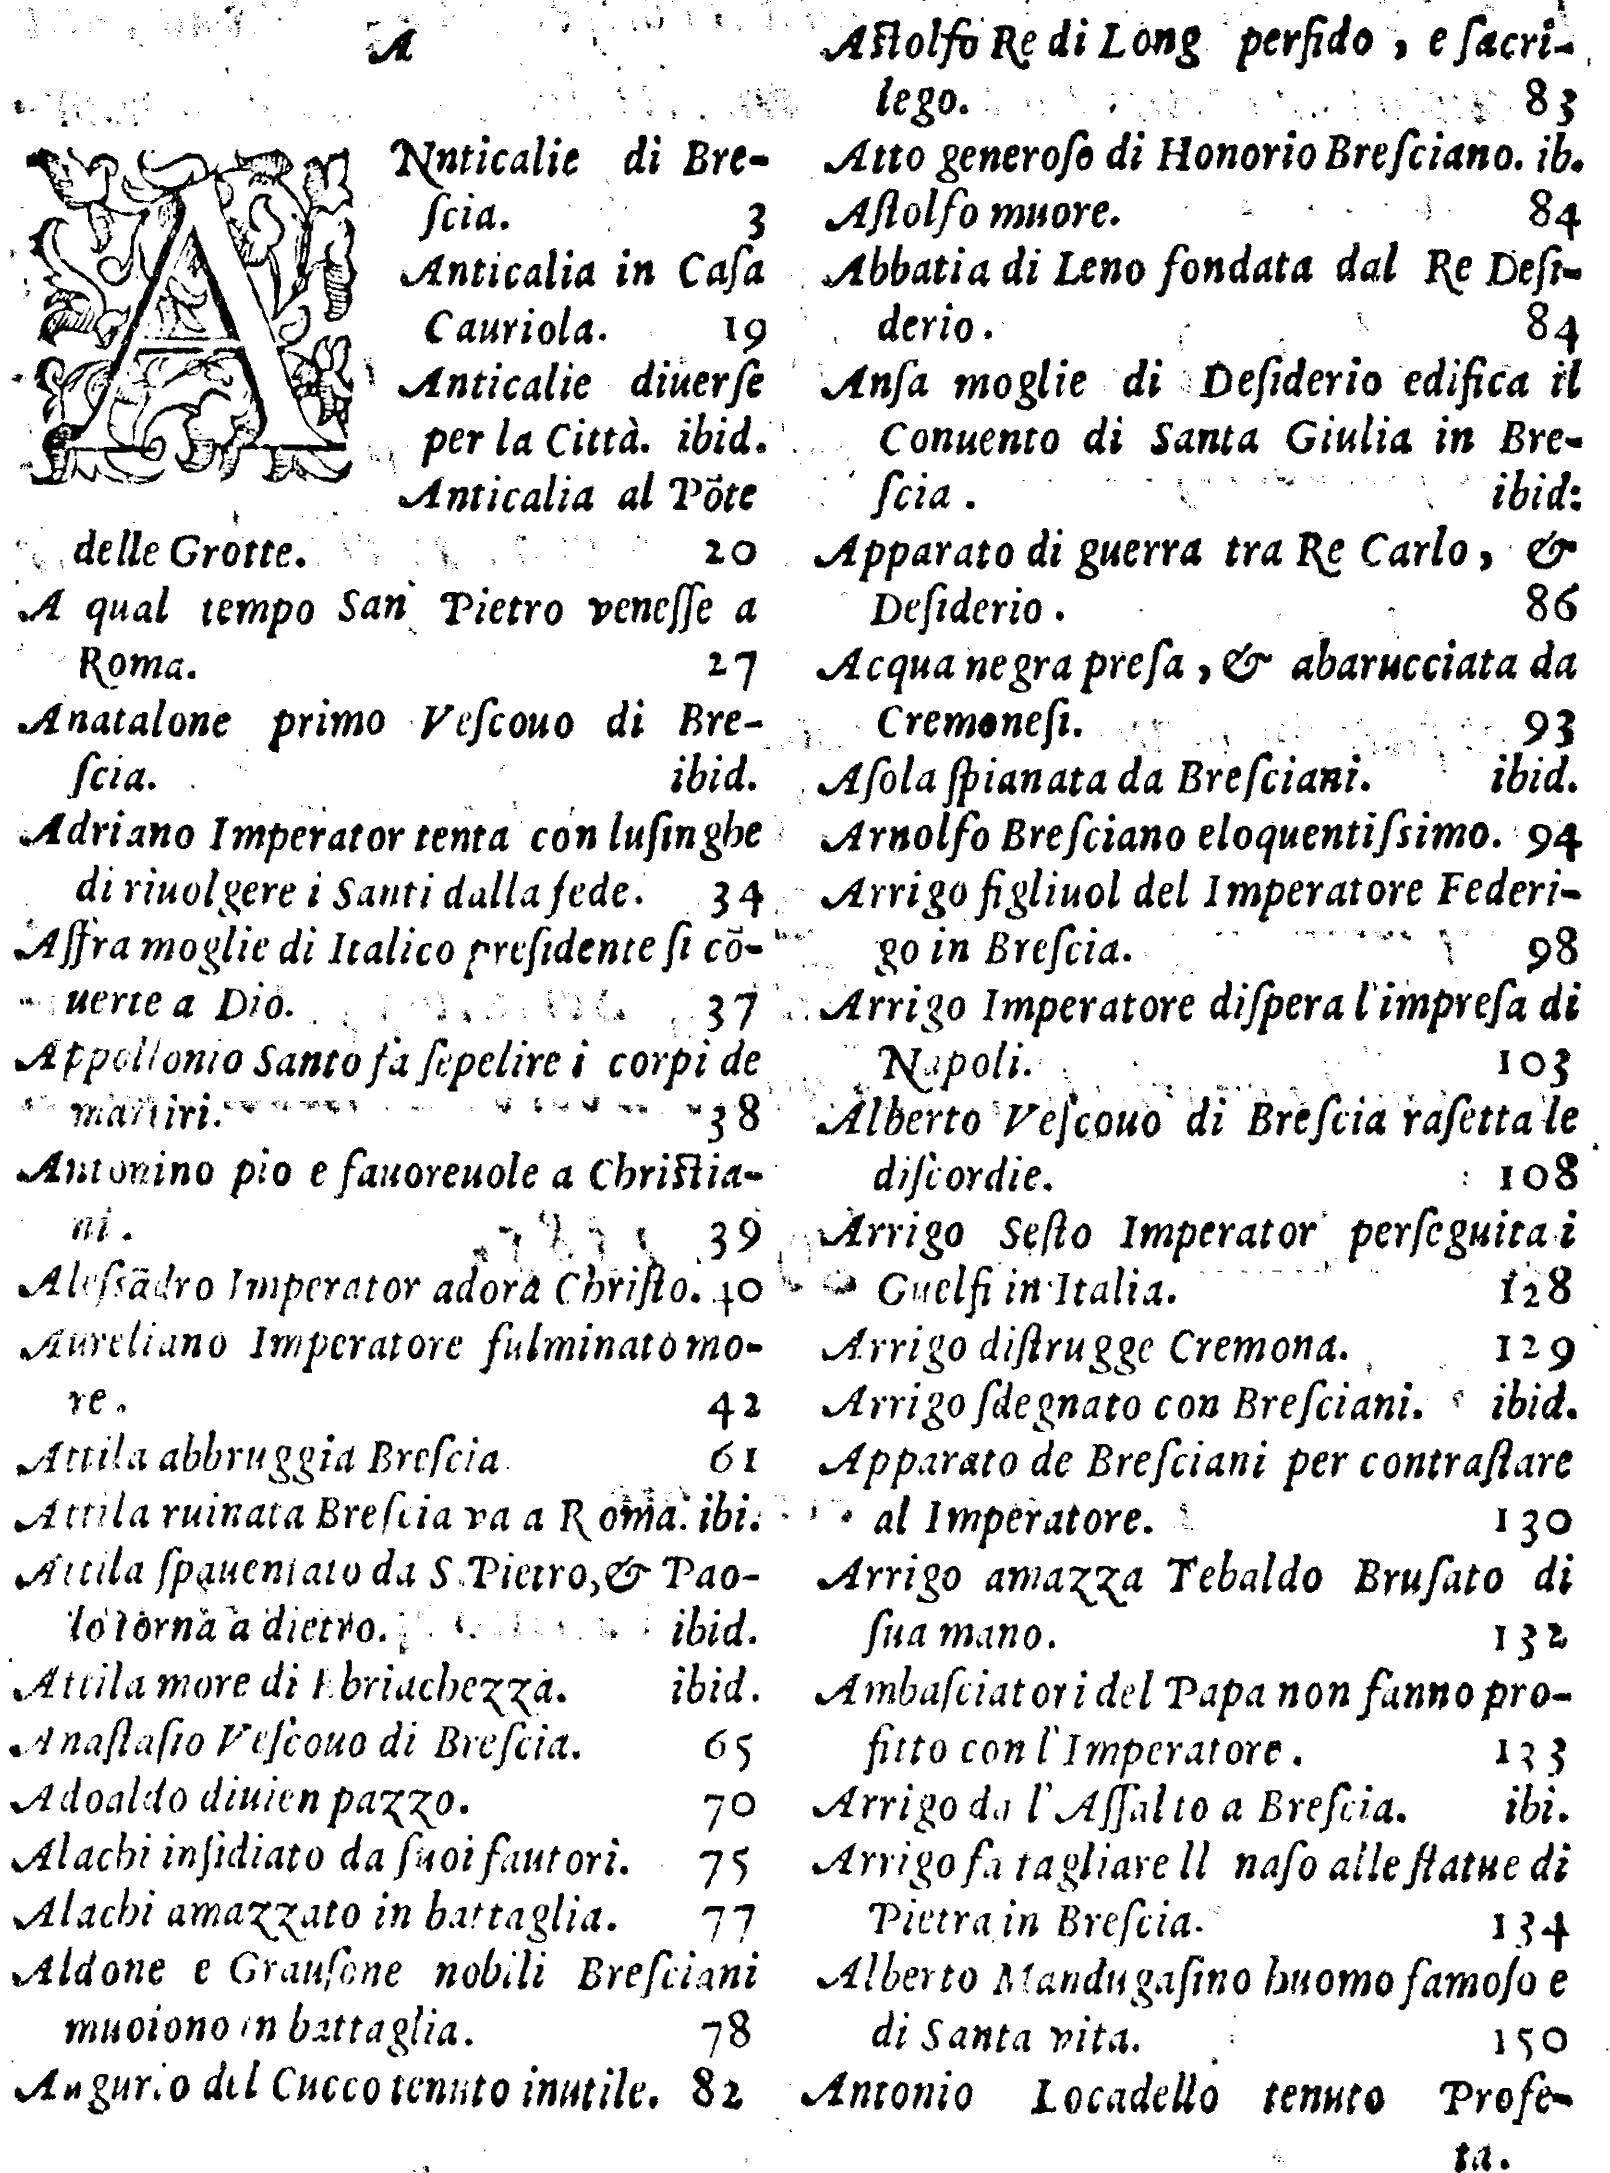 A
ANnticalie di Bre-
ſcia. 3
Anticalia in Caſa
Cauriola. 19
Anticalie diuerſe
per la Città. ibid.
Anticalia al Põte
delle Grotte. 20
A qual tempo San Pietro veneſſe a
Roma. 27
Anatalone primo Veſcouo di Bre-
ſcia. ibid.
Adriano Imperator tenta con luſinghe
di riuolgere i Santi dalla fede. 34
Aſſra moglie di Italico preſidente ſi cõ-
uerte a Dio. 37
Appollonio Santo fa ſepelire i corpi de
martiri. 38
Antonino pio e fauoreuole a Chriſtia-
ni. 39
Aleſsãdro Imperator adora Chriſto. 40
Aureliano Imperatore fulminato mo-
re. 42
Attila abbruggia Breſcia 61
Attila ruinata Breſcia va a Roma. ibi.
Attila ſpauentato da S. Pietro, & Pao-
lo torna a dietro. ibid.
Attila more di Ebriachezza. ibid.
Anaſtaſio Veſcouo di Breſcia. 65
Adoaldo diuien pazzo. 70
Alachi inſidiato da ſuoi fautori. 75
Alachi amazzato in battaglia. 77
Aldone e Grauſone nobili Breſciani
muoiono in battaglia. 78
Augurio del Cucco tenuto inutile. 82
Aſtolfo Re di Long perfido, e ſacri-
lego. 83
Atto generoſo di Honorio Breſciano. ib.
Aſtolfo muore. 84
Abbatia di Leno fondata dal Re Deſi-
derio. 84
Anſa moglie di Deſiderio edifica il
Conuento di Santa Giulia in Bre-
ſcia. ibid:
Apparato di guerra tra Re Carlo, &
Deſiderio. 86
Acqua negra preſa, & abarucciata da
Cremoneſi. 93
Aſola ſpianata da Breſciani. ibid.
Arnolfo Breſciano eloquentiſsimo. 94
Arrigo figliuol del Imperatore Federi-
go in Breſcia. 98
Arrigo Imperatore diſpera l'impreſa di
Napoli. 103
Alberto Veſcouo di Breſcia raſetta le
diſcordie. 108
Arrigo Seſto Imperator perſeguita i
Guelfi in Italia. 128
Arrigo diſtrugge Cremona. 129
Arrigo ſdegnato con Breſciani. ibid.
Apparato de Breſciani per contraſtare
al Imperatore. 130
Arrigo amazza Tebaldo Bruſato di
ſua mano. 132
Ambaſciatori del Papa non fanno pro-
fitto con l'Imperatore. 133
Arrigo da l'Aſſalto a Breſcia. ibi.
Arrigo fa tagliare ll naſo alle ſtatue di
Pietra in Breſcia. 134
Alberto Mandugaſino huomo famoſo e
di Santa vita. 150
Antonio Locadello tenuto Profe-
ta.